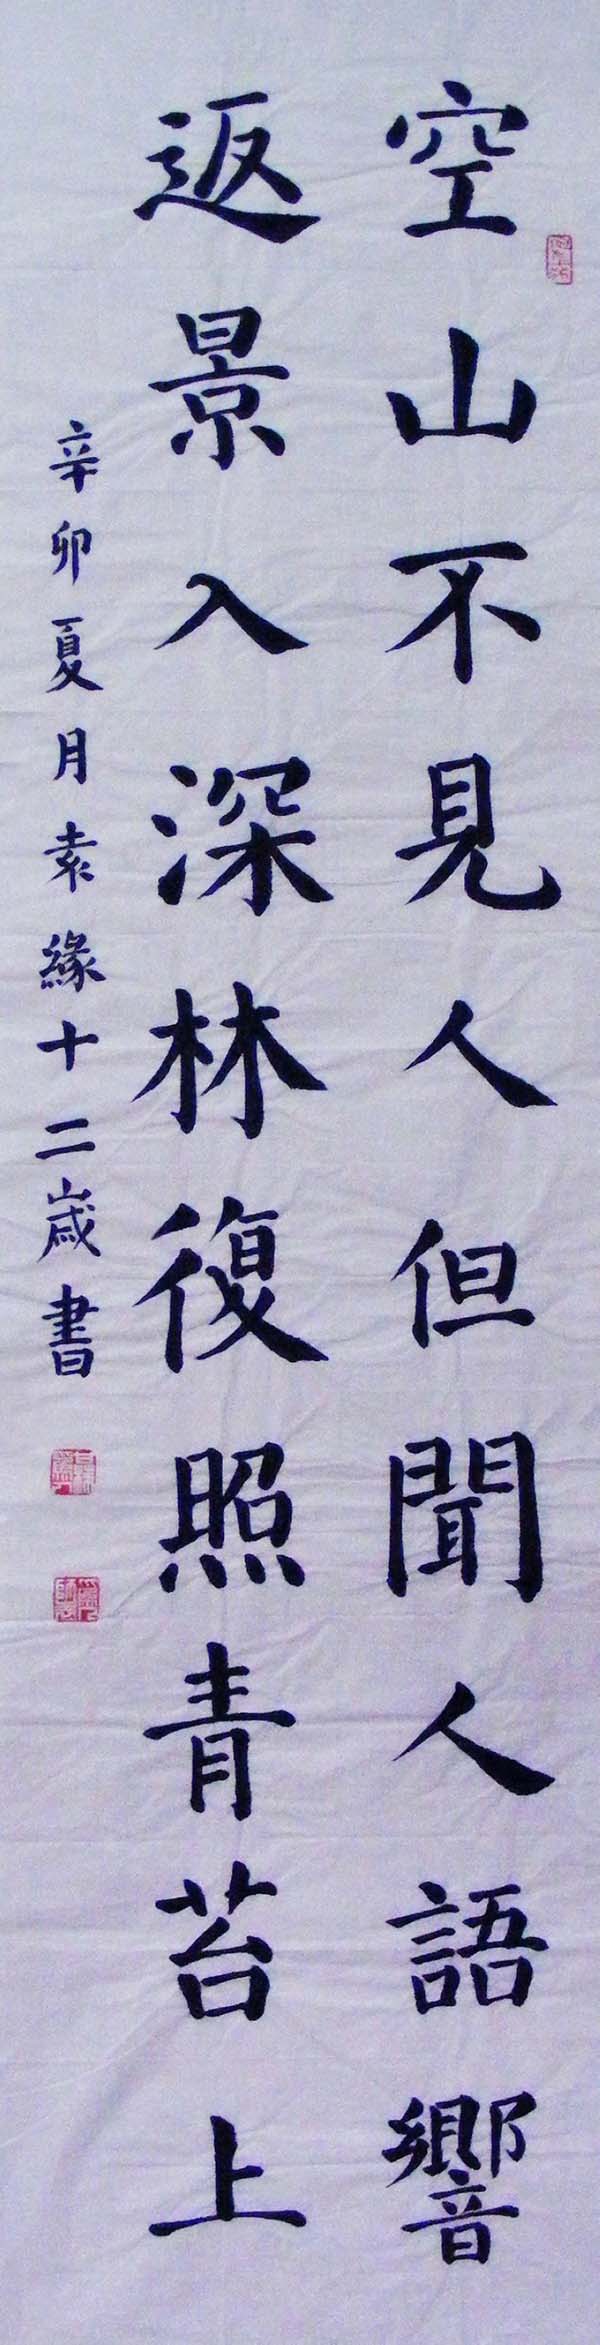 空山不見人但聞人語響
返景入深林復照青苔上
辛卯夏月袁緣十二歲書